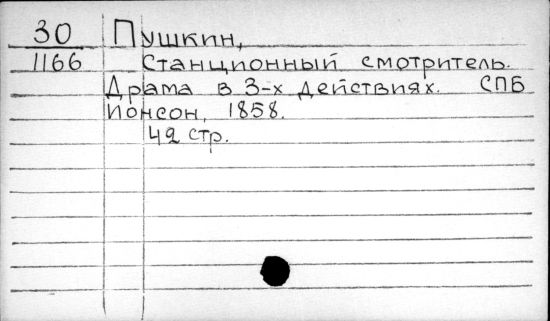 30 Пушкин,
1166 Станционный смотритель.
Драма в 3-х действиях. СПБ
Ионсон, 1858.
42 стр.